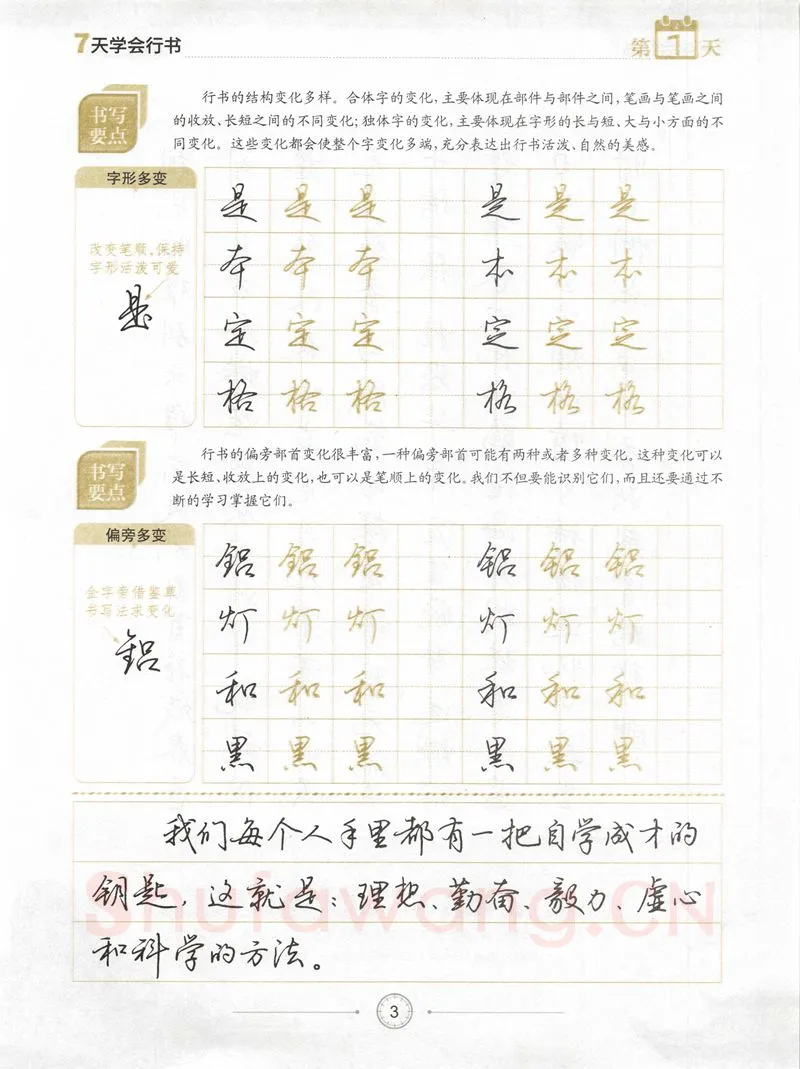 7天学会行书
第1天
书写
要点
行书的结构变化多样。合体字的变化,主要体现在部件与部件之间,笔画与笔画之间
的收放、长短之间的不同变化;独体字的变化,主要体现在字形的长与短、大与小方面的不
同变化。这些变化都会使整个字变化多端,充分表达出行书活泼、自然的美感。
字形多变
改变笔顺,保持
字形活泼可爱
是
是 是 是 是 是 是
本 本 本 本 本 本
定 定 定 定 定 定
格 格 格 格 格 格
书写
要点
行书的偏旁部首变化很丰富,一种偏旁部首可能有两种或者多种变化。这种变化可以
是长短、收放上的变化,也可以是笔顺上的变化。我们不但要能识别它们,而且还要通过不
断的学习掌握它们。
偏旁多变
金字旁借鉴草
书写法求变化
铝
铝 铝 铝 铝 铝 铝
灯 灯 灯 灯 灯 灯
和 和 和 和 和 和
黑 黑 黑 黑 黑 黑
我们每个人手里都有一把自学成才的
钥匙,这就是:理想、勤奋、毅力、虚心
和科学的方法。
Shufawang.CN
3